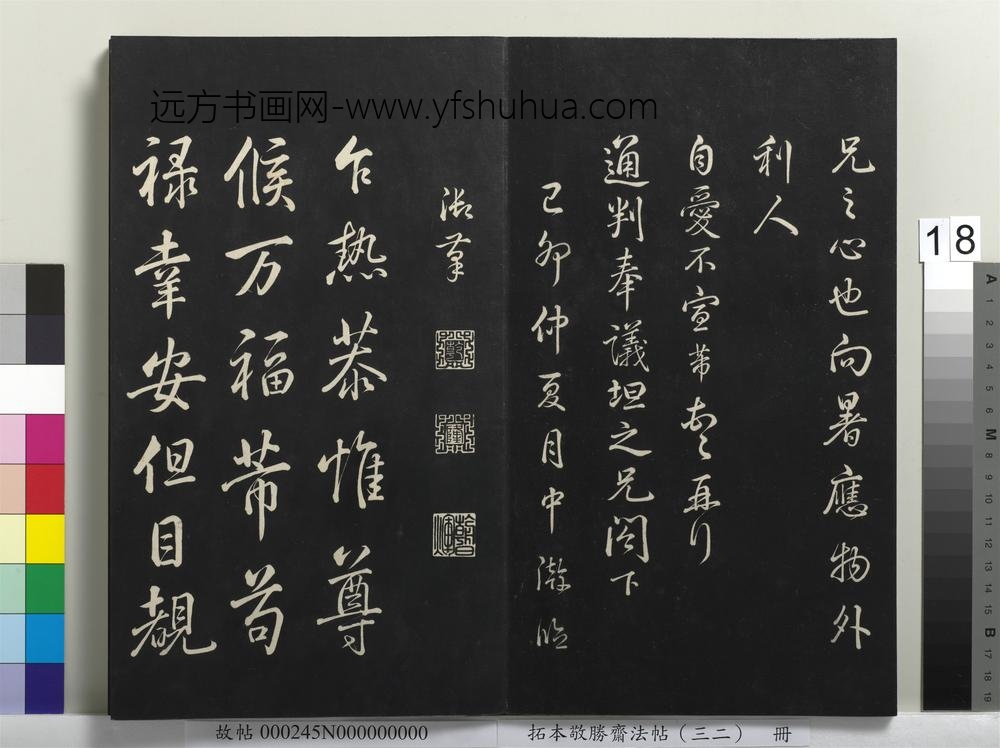 远方书画网-www.yfshuhua.com
兄之心也向暑應物外
利人
自愛不宣芾頓首再行
通判奉議坦之兄閣下
己卯仲夏月中澣臨
乍熱恭惟尊
候万福芾苟
禄幸安但目覩
18
A 1 2 3 4 5 6 M 8 9 10 11 12 13 14 15 B 17 18 19
故帖 000245N000000000
拓本敬勝齋法帖（三二） 冊